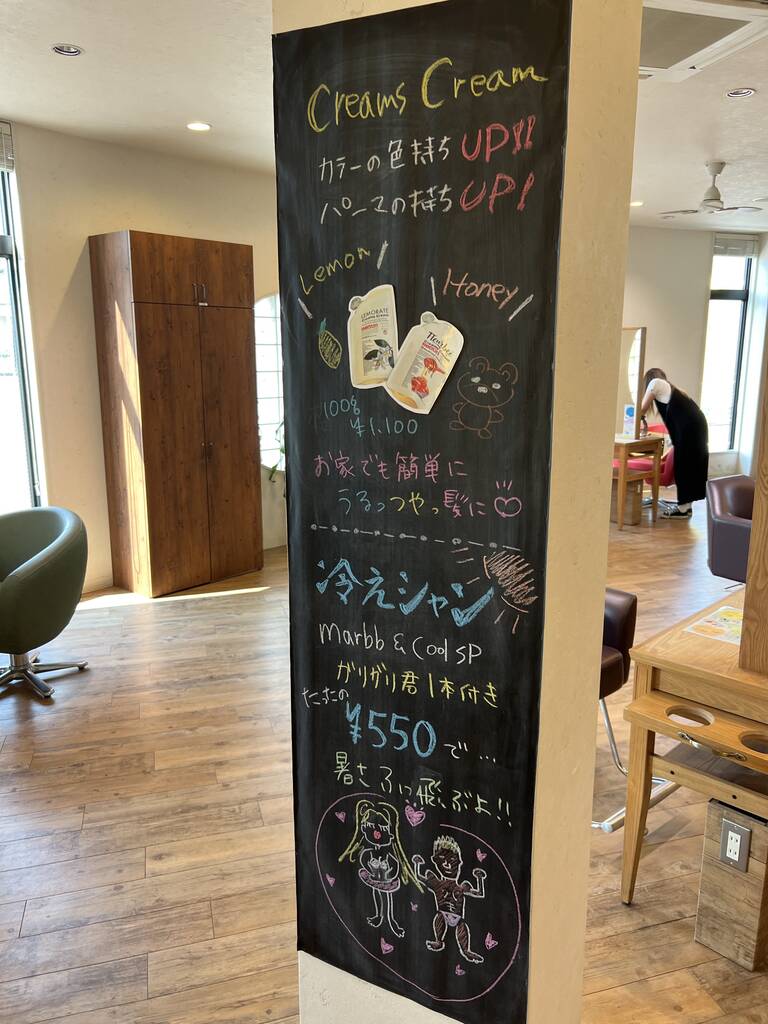 Creams Cream
カラーの色持ち UP!!
パーマの持ち UP!
Lemon
Honey
LEMORATE
100g
¥1,100
お家でも簡単に
うるっつやっ髪に
冷えシャン
marbb & Cool SP
ガリガリ君1本付き
たったの
¥550で…
暑さふっ飛ぶよ!!